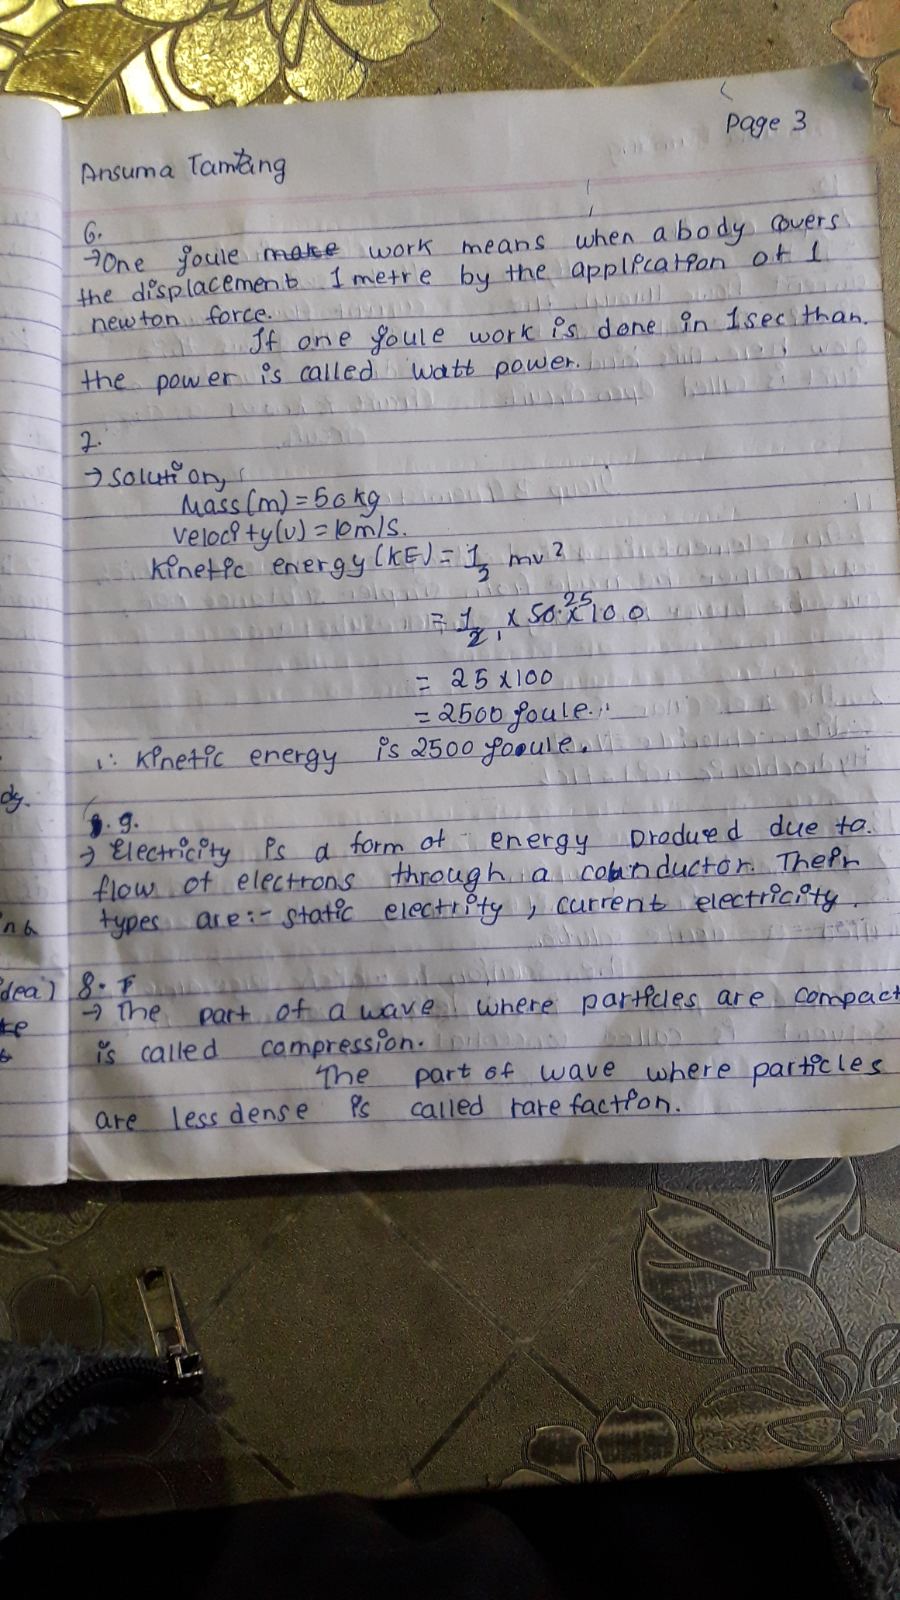 Page 3
Ansuma Tamang
6.
→One joule make work means when a body covers
the displacement 1 metre by the application of 1
newton force.
If one joule work is done in 1sec than.
the power is called watt power.
7.
→ solution,
Mass(m) = 50kg
velocity(v) = 10m/s.
Kinetic energy(KE) = 1/2 mv²
= 1/2 × 50 25 × 100
= 25 × 100
= 2500 joule.
∴ Kinetic energy is 2500 jooule.
9.
→ Electricity is a form of energy produed due to.
flow of electrons through a conductor. Their
types are:- static electrity, current electricity.
8.
→ The part of a wave where particles are compact
is called compression.
The part of wave where particles
are less dense is called rarefaction.
dy.